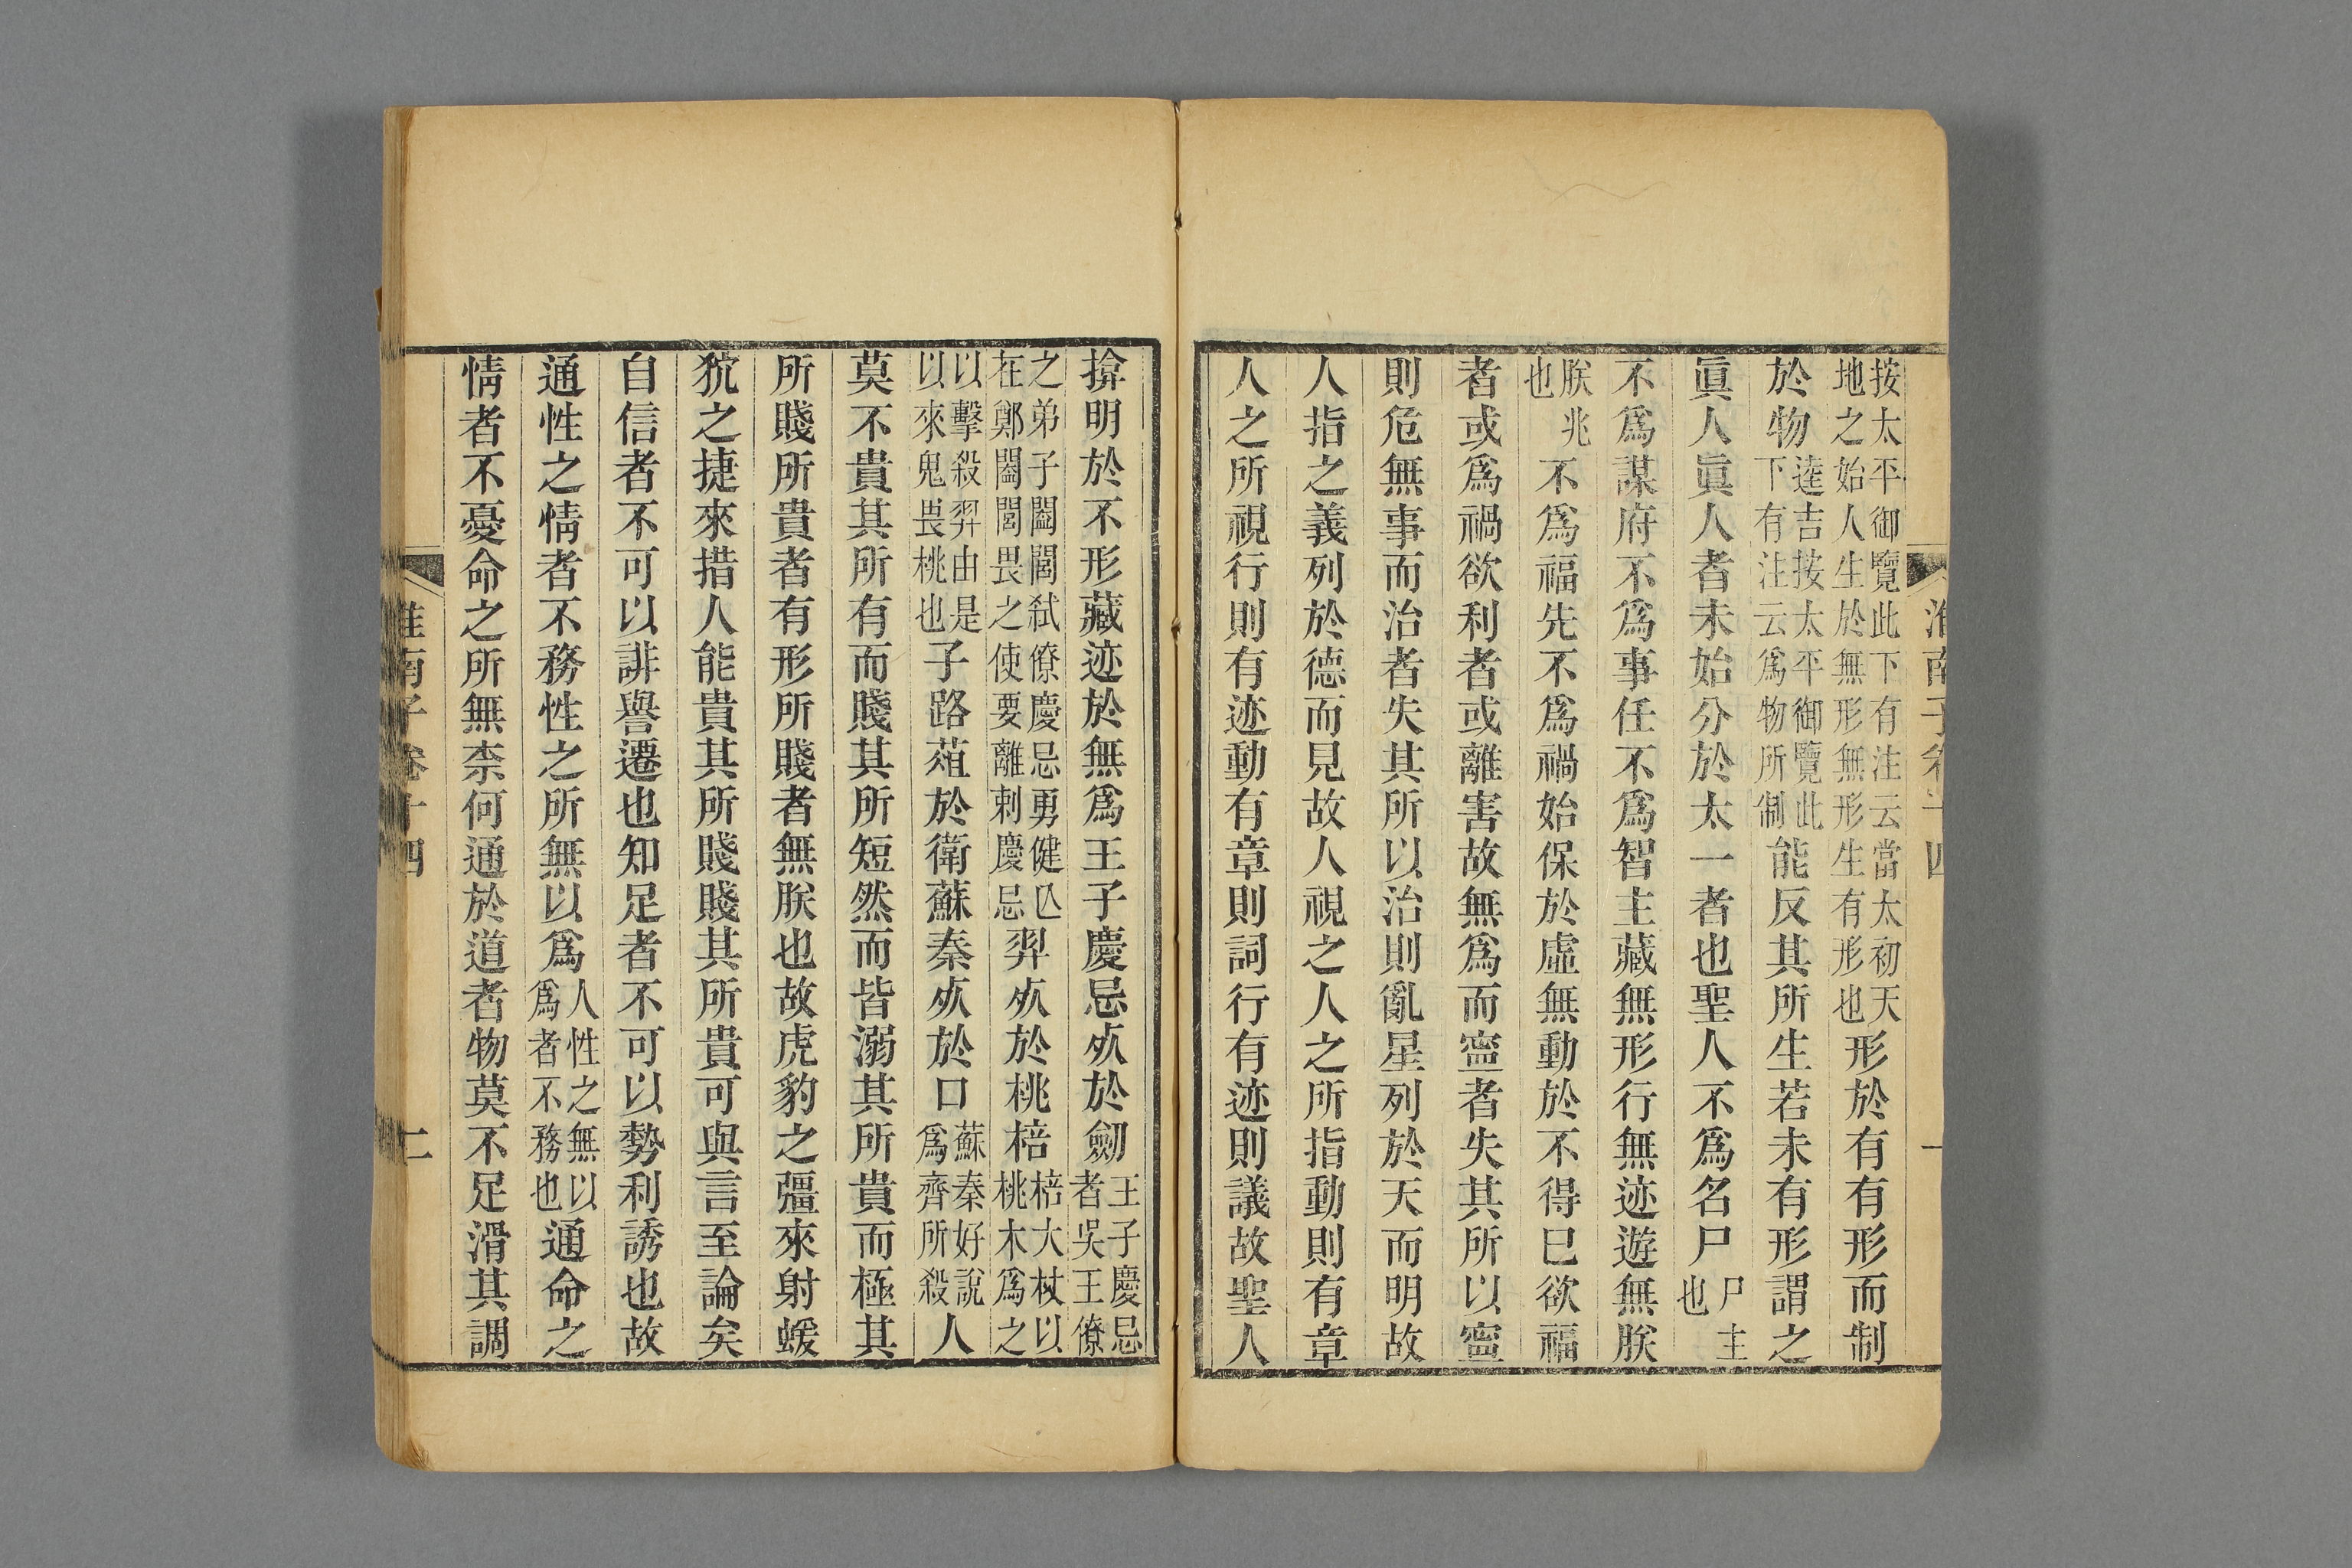 淮南子卷十四 一
按太平御覽此下有注云當太初天
地之始人生於無形無形生有形也
形於有有形而制
於物
逵吉按太平御覽此
下有注云爲物所制
能反其所生若未有形謂之
眞人眞人者未始分於太一者也聖人不爲名尸
尸主
也
不爲謀府不爲事任不爲智主藏無形行無迹遊無朕
朕兆
也
不爲福先不爲禍始保於虛無動於不得已欲福
者或爲禍欲利者或離害故無爲而寍者失其所以寍
則危無事而治者失其所以治則亂星列於天而明故
人指之義列於德而見故人視之人之所指動則有章
人之所視行則有迹動有章則詞行有迹則議故聖人
揜明於不形藏迹於無爲王子慶忌𣦸於劒
王子慶忌
者吳王僚
之弟子闔閭弑僚慶忌勇健亾
在鄭闔閭畏之使要離刺慶忌
羿𣦸於桃棓
棓大杖以
桃木爲之
以擊殺羿由是
以來鬼畏桃也
子路葅於衛蘇秦𣦸於口
蘇秦好說
爲齊所殺
人
莫不貴其所有而賤其所短然而皆溺其所貴而極其
所賤所貴者有形所賤者無朕也故虎豹之彊來射蝯
狖之捷來措人能貴其所賤賤其所貴可與言至論矣
自信者不可以誹譽遷也知足者不可以勢利誘也故
通性之情者不務性之所無以爲
人性之無以
爲者不務也
通命之
情者不憂命之所無柰何通於道者物莫不足滑其調
淮南子卷十四 二